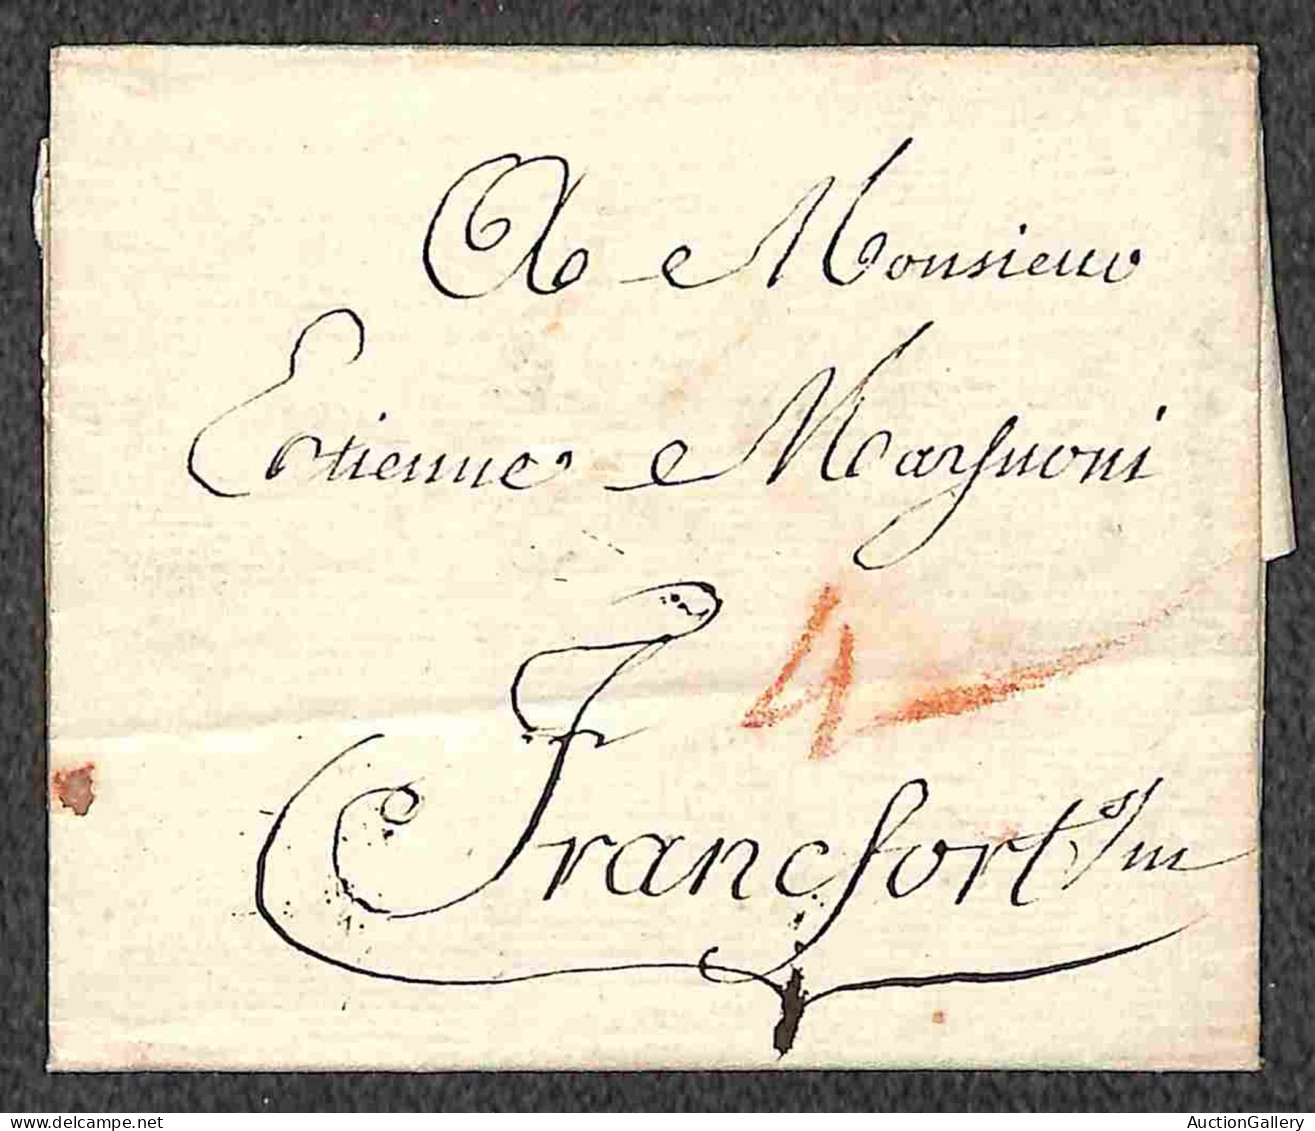 A Monsieur
Etienne Margnoni
4
Francfort s/m
delcampe.net
AuctionGallery